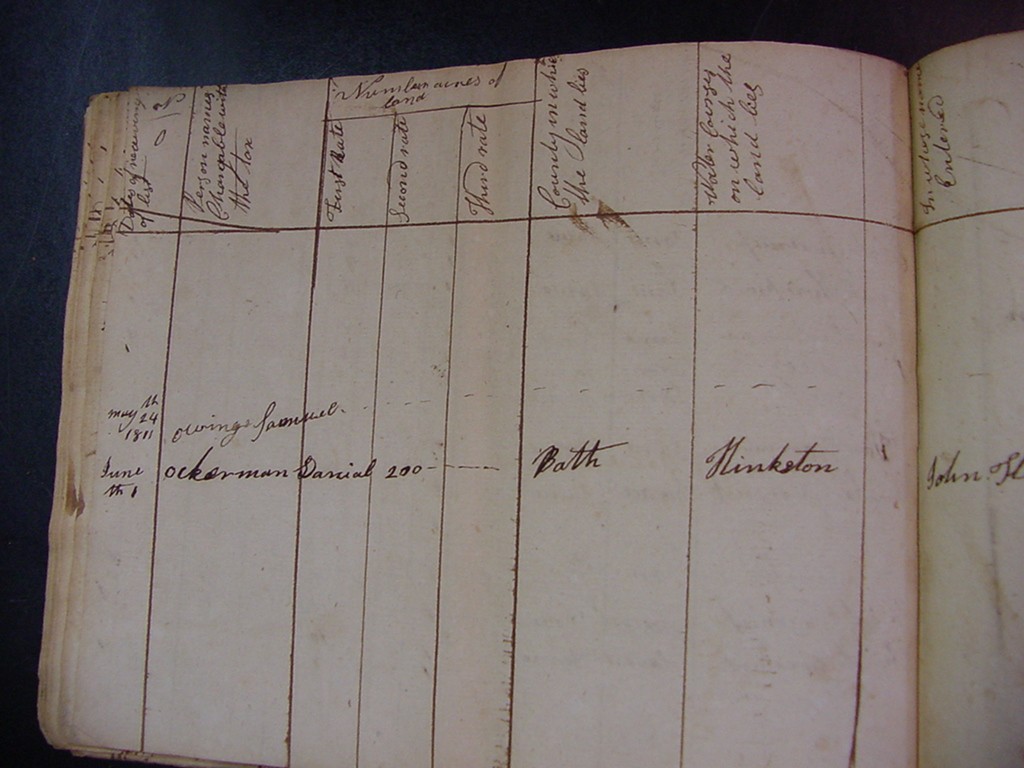 Dates of receiving
of list
Person names
Chargable with
the tax
Number acres of
land
First Rate
Second rate
Third rate
County in which
the Land lies
Water Coursy
on which the
land lies
In whose name
Entered
may th
24
1811
Owings Samuel
June
th 1
Ockerman Danial 200
Bath
Hinkston
John